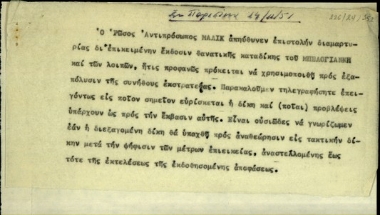 Ἐν Παρισίοις
Ὁ Ρῶσος Ἀντιπρόσωπος ΜΑΛΙΚ ἀπηύθυνεν ἐπιστολήν διαμαρτυ-
ρίας δι' ἐπικειμένην ἔκδοσιν θανατικῆς καταδίκης τοῦ ΜΠΕΛΟΓΙΑΝΝΗ
καί τῶν λοιπῶν, ἥτις προφανῶς πρόκειται νά χρησιμοποιηθῇ πρός ἐξα-
πόλυσιν τῆς συνήθους ἐκστρατείας. Παρακαλοῦμεν τηλεγραφήσητε ἐπει-
γόντως εἰς ποῖον σημεῖον εὑρίσκεται ἡ δίκη καί (ποῖαι) προβλέψεις
ὑπάρχουν ὡς πρός τήν ἔκβασιν αὐτῆς. Εἶναι οὐσιῶδες νά γνωρίζωμεν
ἐάν ἡ διεξαγομένη δίκη θά ὑποχθῇ πρός ἀναθεώρησιν εἰς τακτικήν δί-
κην μετά τήν ψήφισιν τῶν μέτρων ἐπιεικείας, ἀναστελλομένης ἕως
τότε τῆς ἐκτελέσεως τῆς ἐκδοθησομένης ἀποφάσεως.